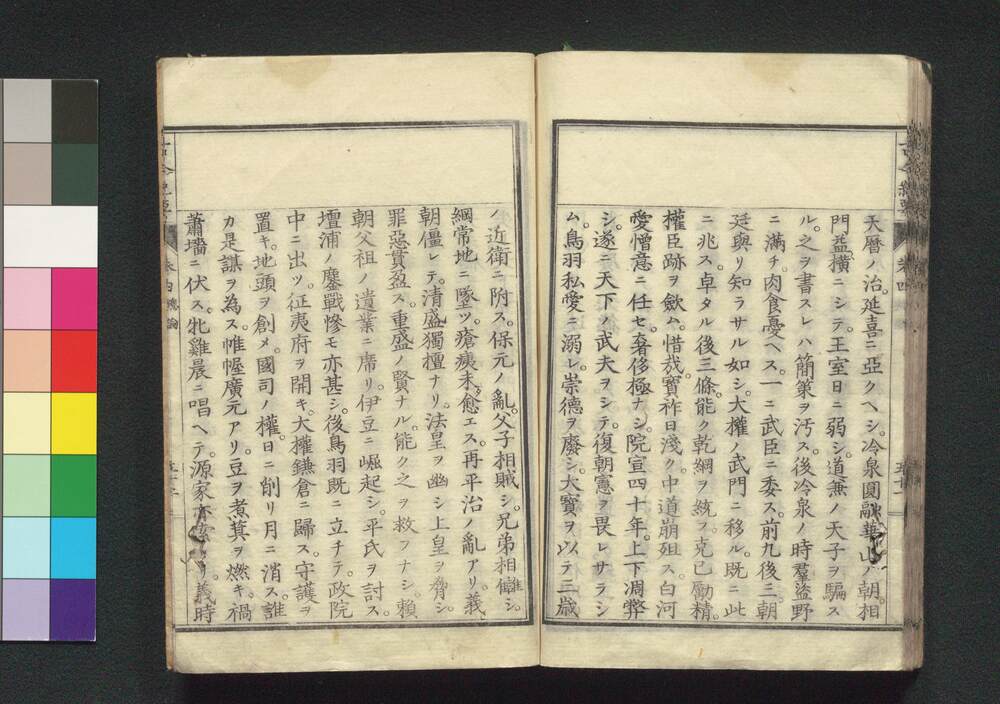 天暦ノ治。延喜ニ亞クヘシ。冷泉圓融華山ノ朝。相
門益橫ニシテ。王室日ニ弱シ。道兼ノ天子ヲ騙ス
ル。之ヲ書スレハ簡策ヲ汚ス。後冷泉ノ時。羣盜野
ニ滿チ。肉食憂ヘス。一ニ武臣ニ委ス。前九後三。朝
廷與リ知ラサル如シ。大權ノ武門ニ移ル。既ニ此
ニ兆ス。卓タル後三條。能ク乾綱ヲ統フ。克已勵精。
權臣跡ヲ歛ム。惜哉寶祚日淺ク。中道崩殂ス。白河
愛憎意ニ任セ。奢侈極ナシ。院宣四十年。上下凋弊
シ。遂ニ天下ノ武夫ヲシテ。復朝憲ヲ畏レサラシ
ム。鳥羽私愛ニ溺レ。崇德ヲ廢シ。大寶ヲ以テ三歳
ノ近衛ニ附ス。保元ノ亂。父子相賊シ。兄弟相讎シ。
綱常地ニ墜ツ。瘡痍未タ愈エス。再平治ノ亂アリ。義
朝僵レテ。清盛獨擅ナリ。法皇ヲ幽シ上皇ヲ脅シ。
罪惡貫盈ス。重盛ノ賢ナル。能ク之ヲ救フナシ。賴
朝父祖ノ遺業ニ席リ。伊豆ニ崛起シ。平氏ヲ討ス。
壇浦ノ鏖戰慘モ亦甚シ。後鳥羽既ニ立チテ。政院
中ニ出ツ。征夷府ヲ開キ。大權鎌倉ニ歸ス。守護ヲ
置キ。地頭ヲ創メ。國司ノ權。日ニ削リ月ニ消ス。誰
カ是謀ヲ為ス。帷幄廣元アリ。豆ヲ煮萁ヲ燃キ。禍
蕭墻ニ伏ス。牝雞晨ニ唱ヘテ。源家亦索リ。義時